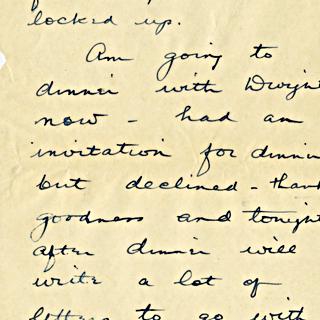 locked up.
Am going to
dinner with Dwight
now - had an
invitation for dinner
but declined - thank
goodness and tonight
after dinner will
write a lot of
letters to go with